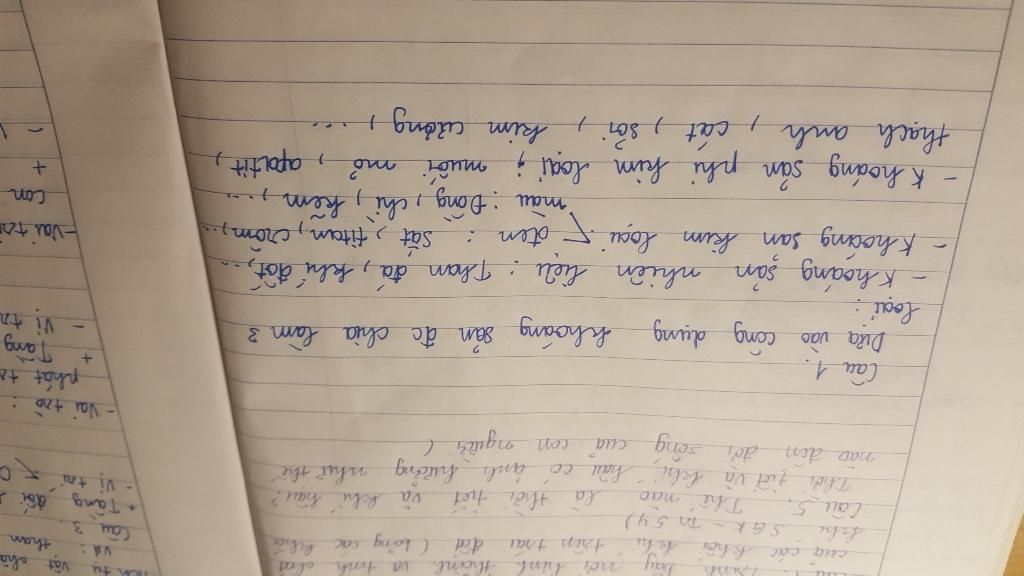 trình bày nơi hình thành và tính chất
của các khối khí trên trái đất (bảng các khối
khí SGK - Tr 54)
Câu 5. Thế nào là thời tiết và khí hậu?
Thời tiết và khí hậu có ảnh hưởng như thế
nào đến đời sống của con người (
Câu 1.
Dựa vào công dụng khoáng sản đc chia làm 3
loại:
- Khoáng sản nhiên liệu: Than đá, khí đốt,...
- Khoáng sản kim loại: đen: sắt, titan, crôm,...
màu: Đồng, chì, kẽm,...
- Khoáng sản phi kim loại: muối mỏ, apatit,
thạch anh, cát, sỏi, kim cương,...
vd: than
Câu 3.
+ Tầng đối
- Vị trí
- Vai trò:
phát
+ Tầng
- Vị
- Vai trò
con
+
-